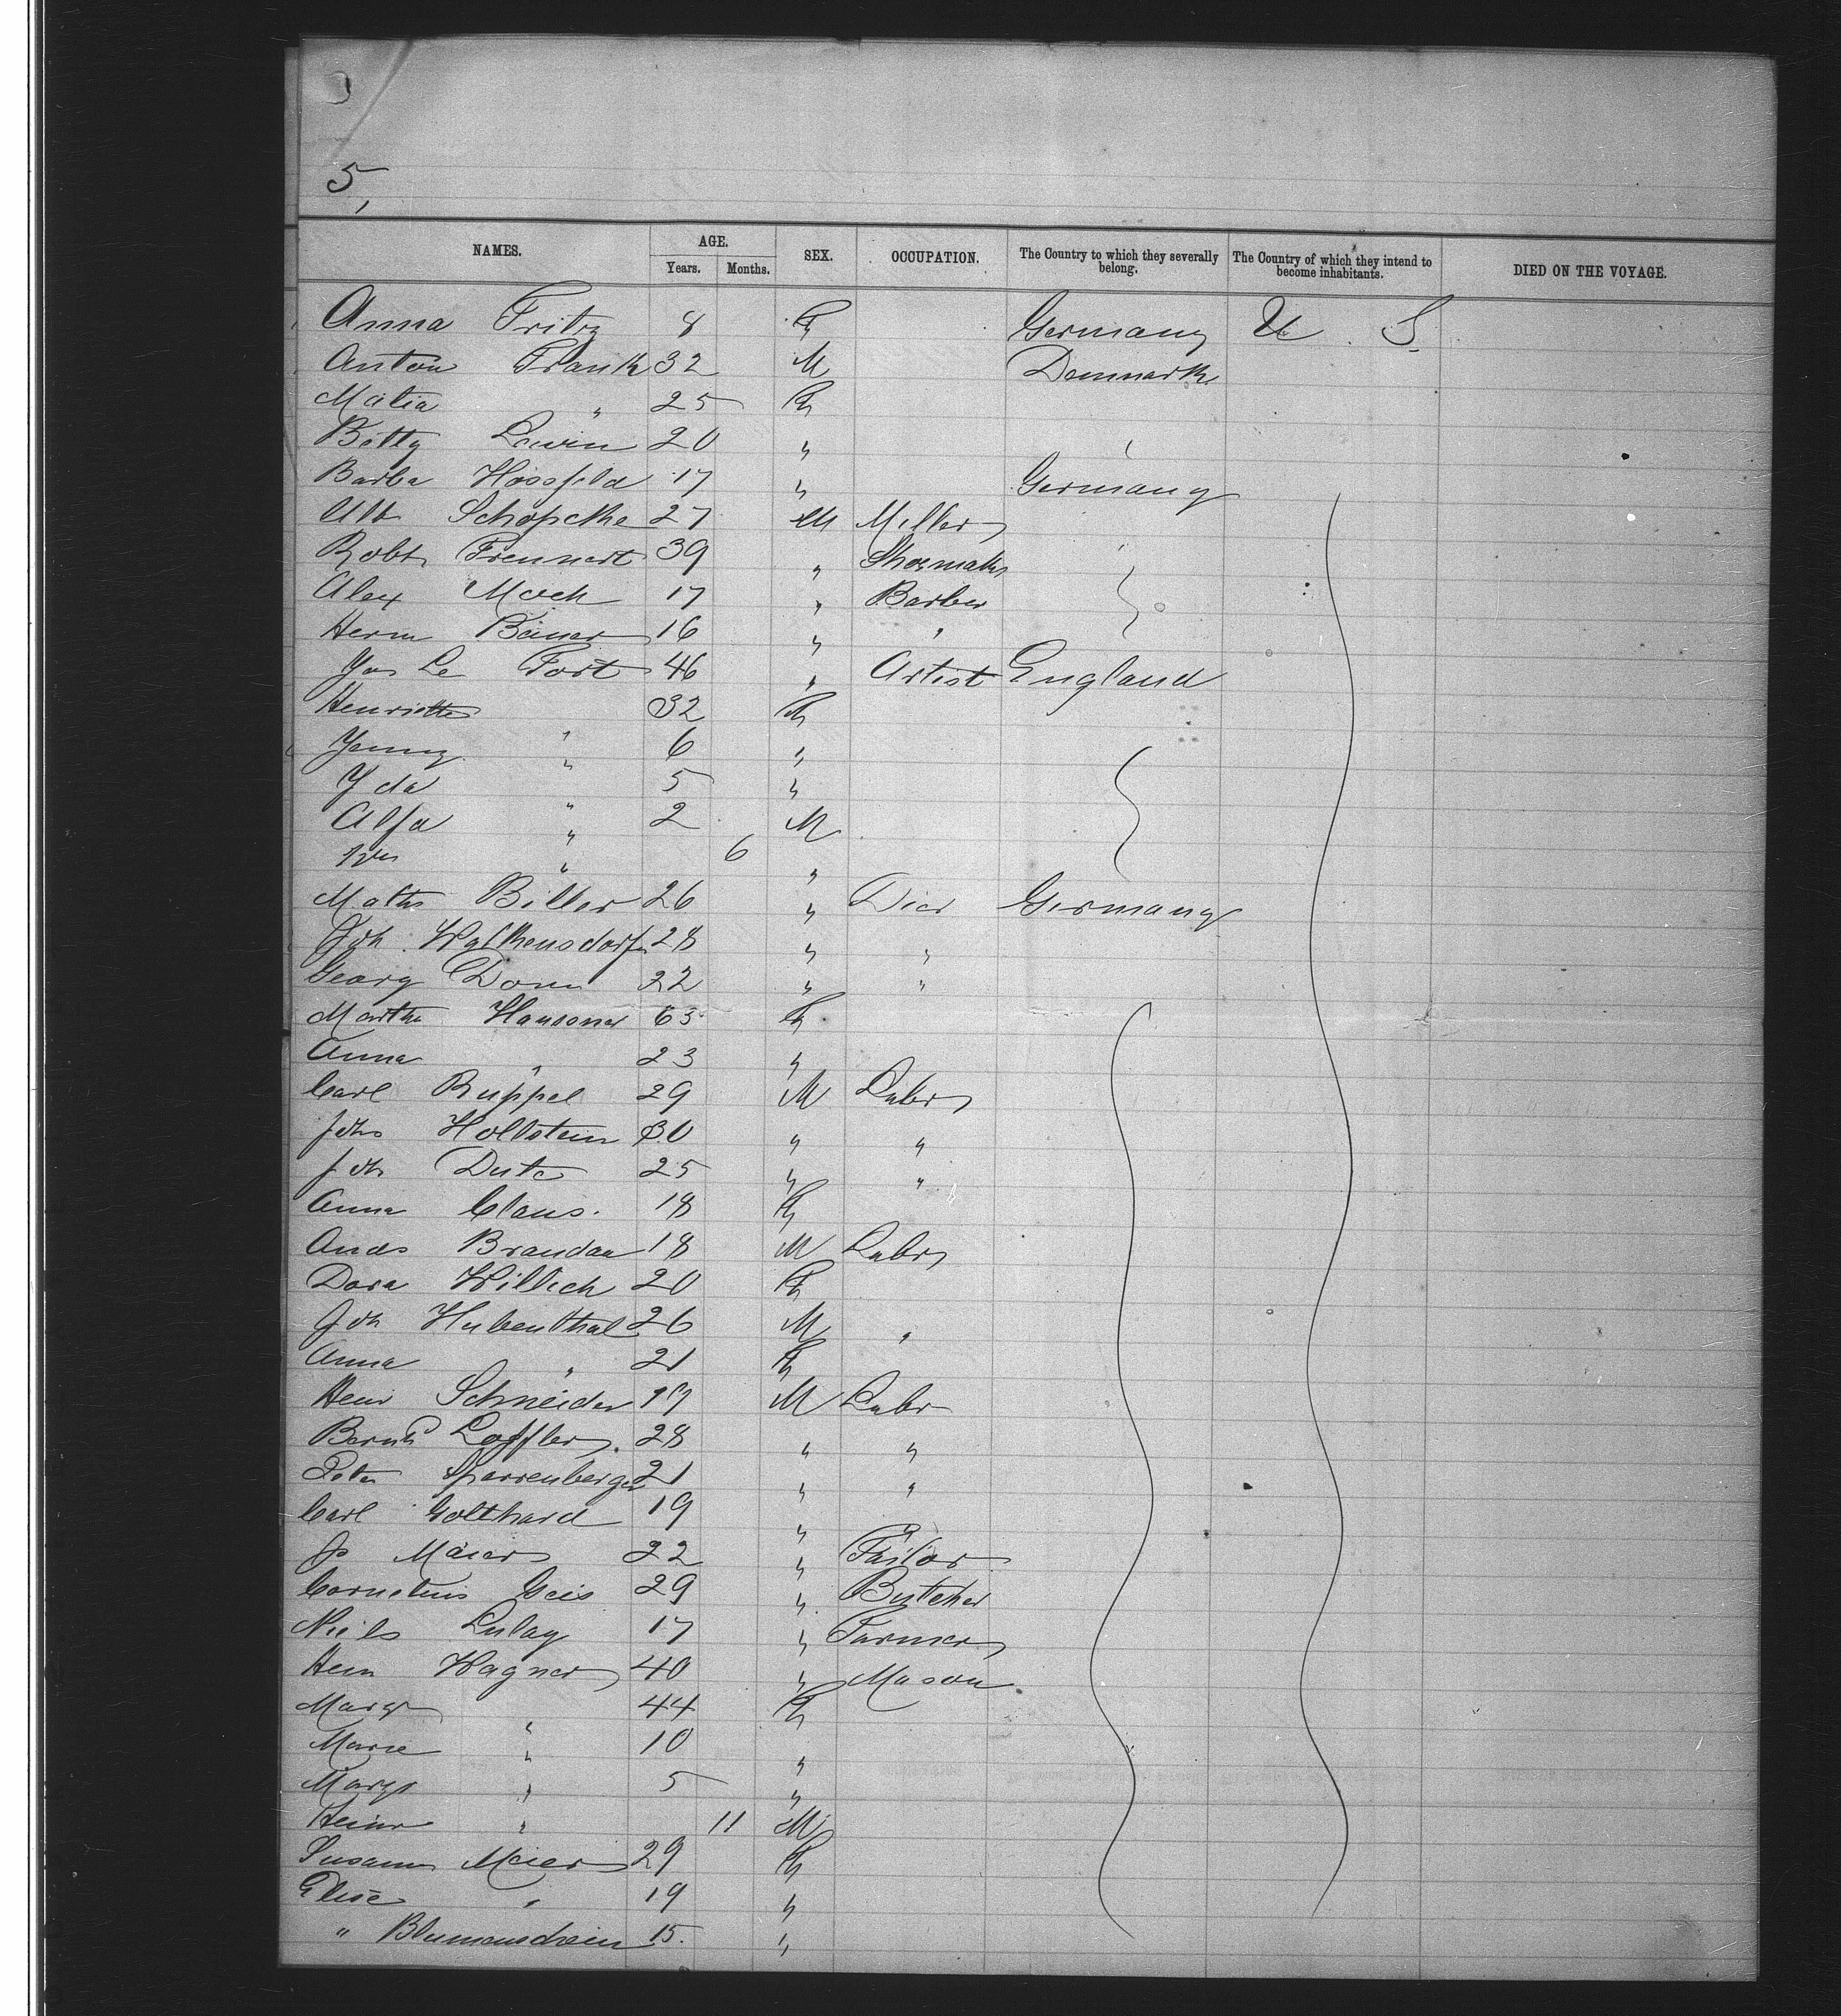 5,
NAMES. AGE. SEX. OCCUPATION. The Country to which they severally belong. The Country of which they intend to become inhabitants. DIED ON THE VOYAGE.
Years. Months.
Anna Fritz 8 F Germany U. S.
Anton Frank 32 M Denmark
Maria " 25 F
Betty Lewin 20 "
Barba Hossfeld 17 " Germany
Alb Schopcke 27 M Miller
Robt Frennert 39 " Shoemaker
Alex Mock 17 " Barber
Herm Bauer 16 " "
Jos Le Fort 46 " Artist England
Henriette " 32 F
Jenny " 6 "
Ida " 5 "
Alfa " 2 M
" 6 "
Maths Biller 26 " Dier Germany
Joh Walkensdorfer 28 " "
Georg Dorn 22 " "
Martha Hansoner 63 F
Anna " 23 "
Carl Ruppel 29 M Labr
Johs Hollstein 30 " "
Joh Dute 25 " "
Anna Claus. 18 F
Ands Brandau 18 M Labr
Dora Willich 20 F
Joh Hubenthal 26 M "
Anna " 21 F
Heinr Schneider 19 M Labr
Bernh Loffler 28 " "
Peter Sparrenberger 21 " "
Carl Gotthard 19 "
Js Maier 22 " Tailor
Cornelius Geis 29 " Butcher
Niels Lulay 17 " Farmer
Hein Wagner 40 " Mason
Margr " 44 F
Marie " 10 "
Margr " 5 "
Heinr " 11 M
Susanna Meier 29 F
Elise " 19 "
" Blumenschein 15. "